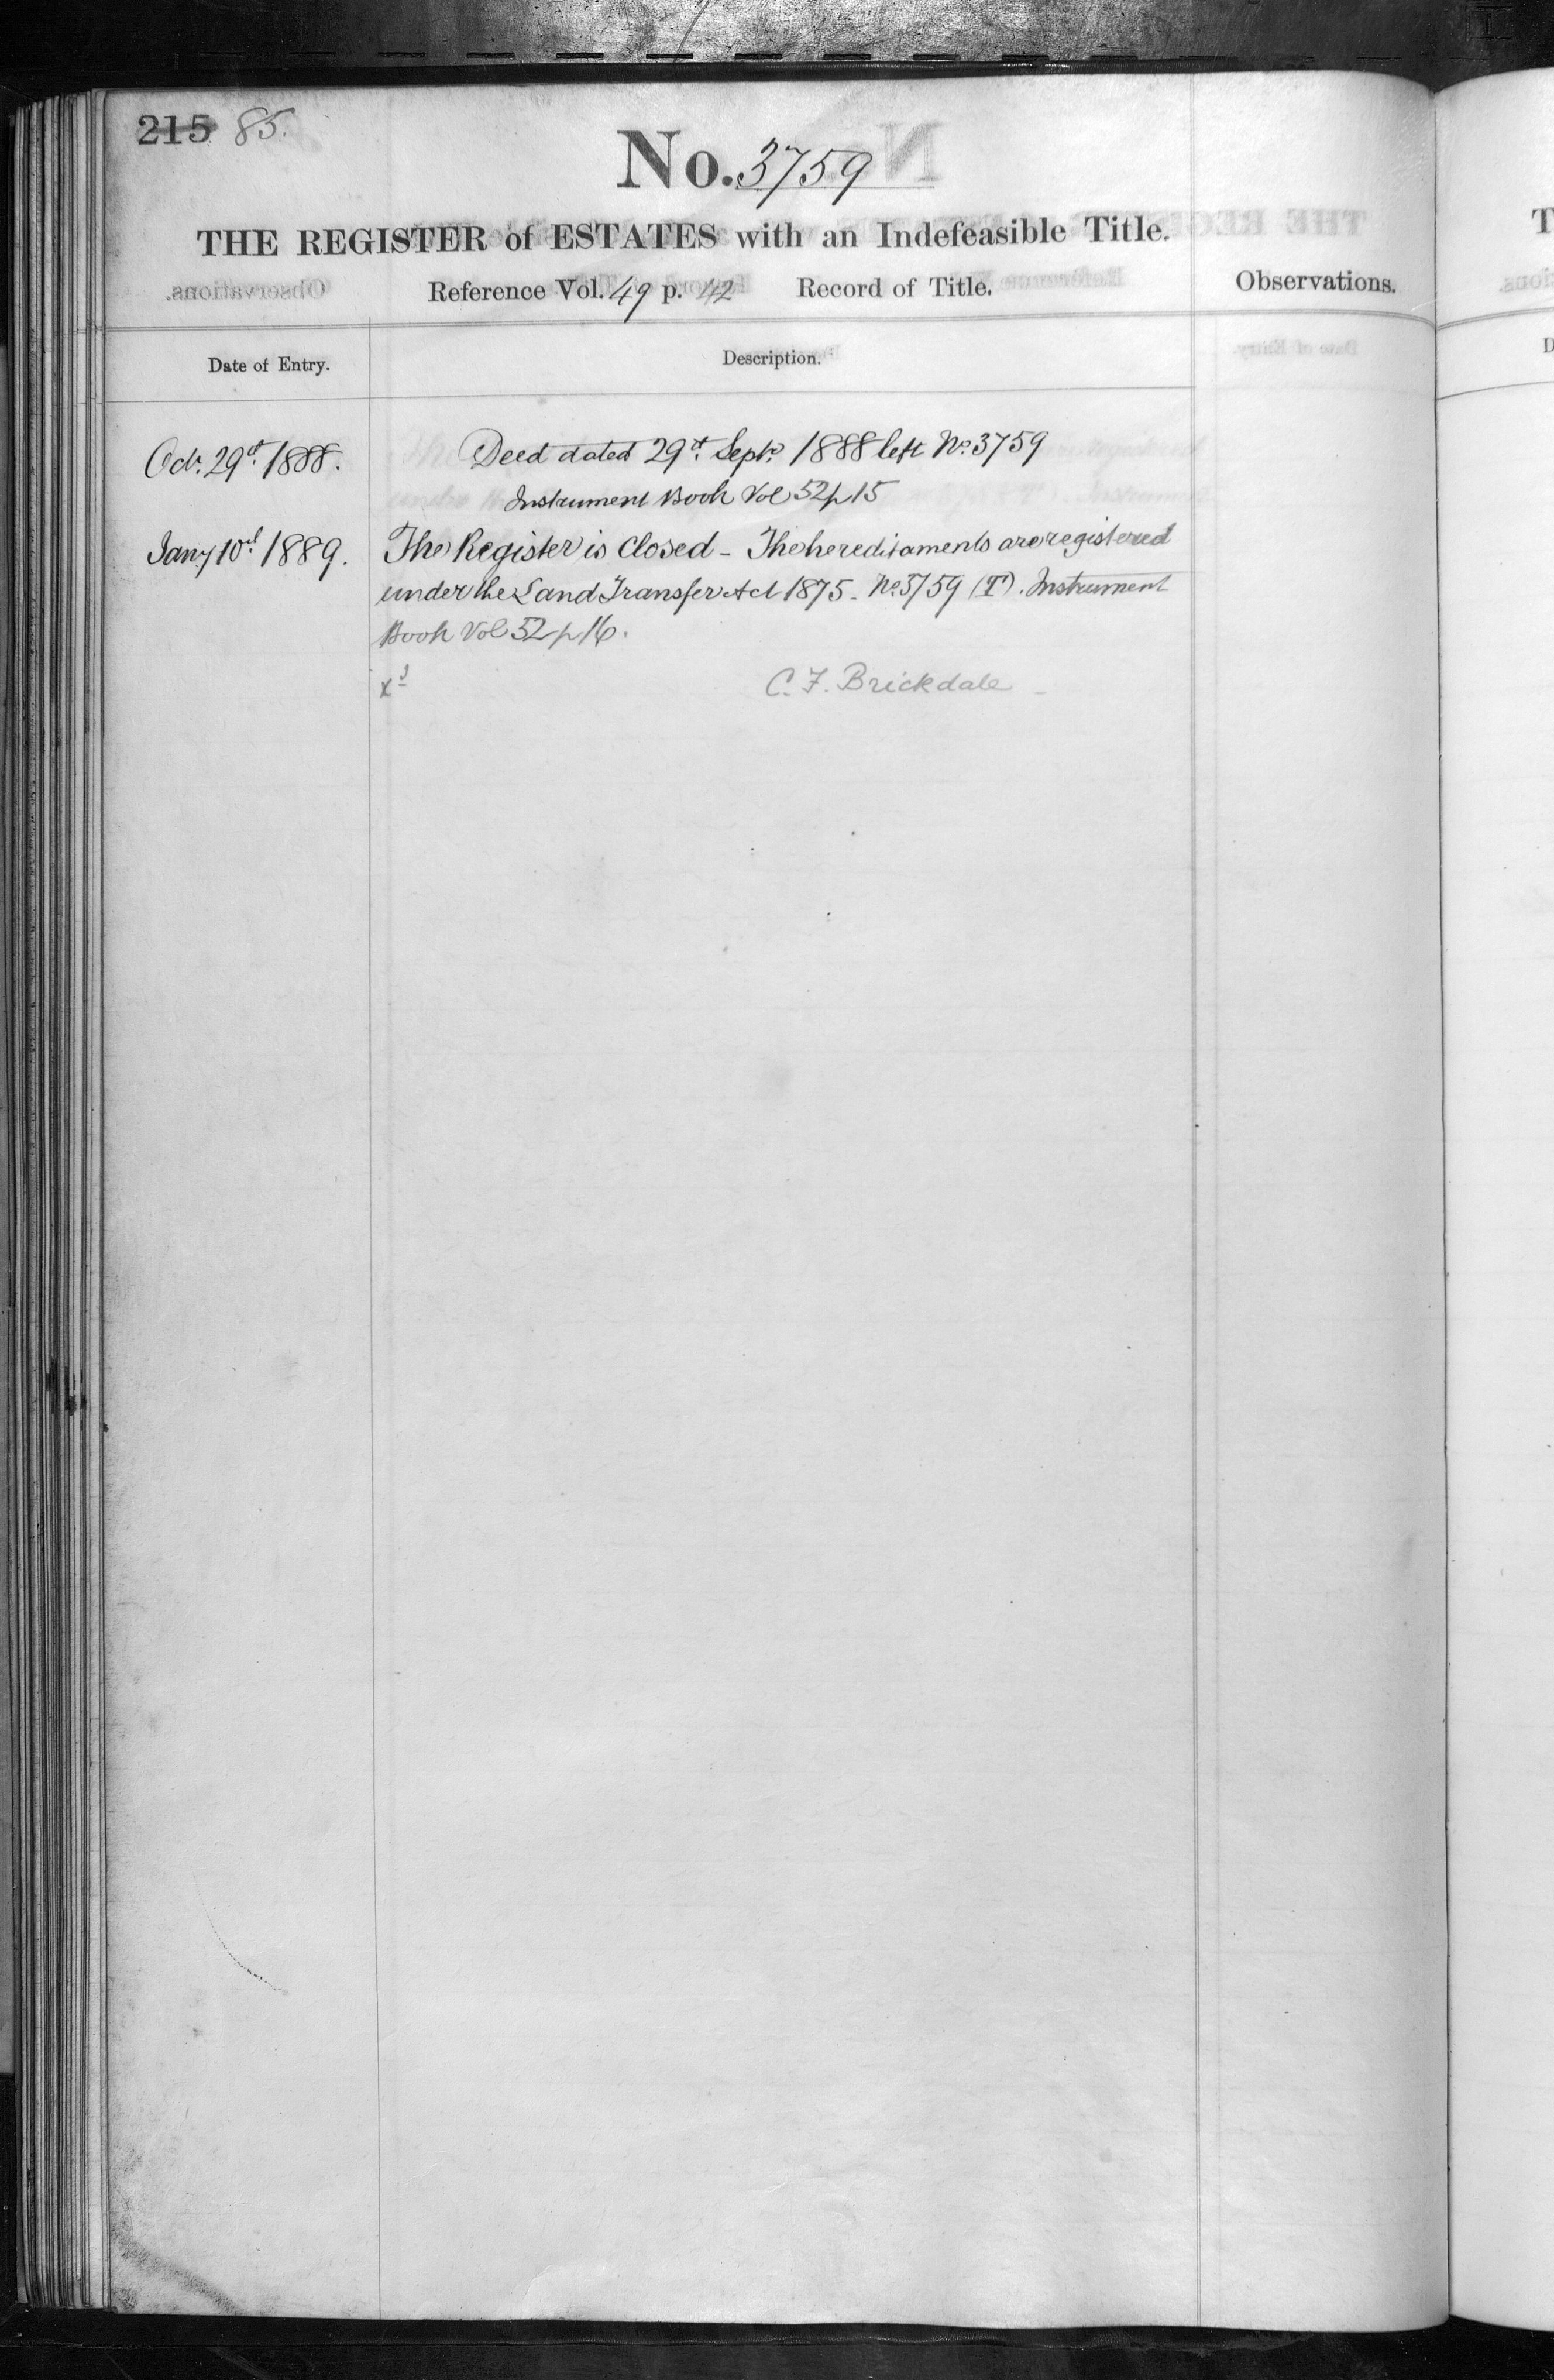 215 85.
No. 3759
THE REGISTER of ESTATES with an Indefeasible Title.
Reference Vol. 49 p. 42 Record of Title. Observations.
Date of Entry. Description.
Octr. 29th. 1888. Deed dated 29th. Septr. 1888 left No. 3759
Instrument Book Vol 52 p 15
Jany 10th 1889. The Register is Closed - The hereditaments are registered
under the Land Transfer Act 1875 - No. 3759 (T). Instrument
Book Vol 52 p 16.
xd C. F. Brickdale